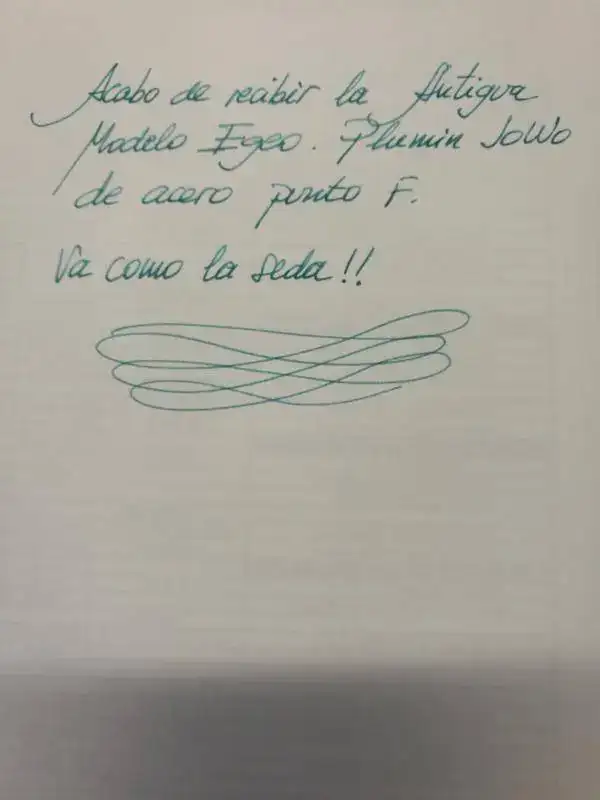 Acabo de recibir la Antigua
Modelo Egeo. Plumin JoWo
de acero punto F.
Va como la seda!!